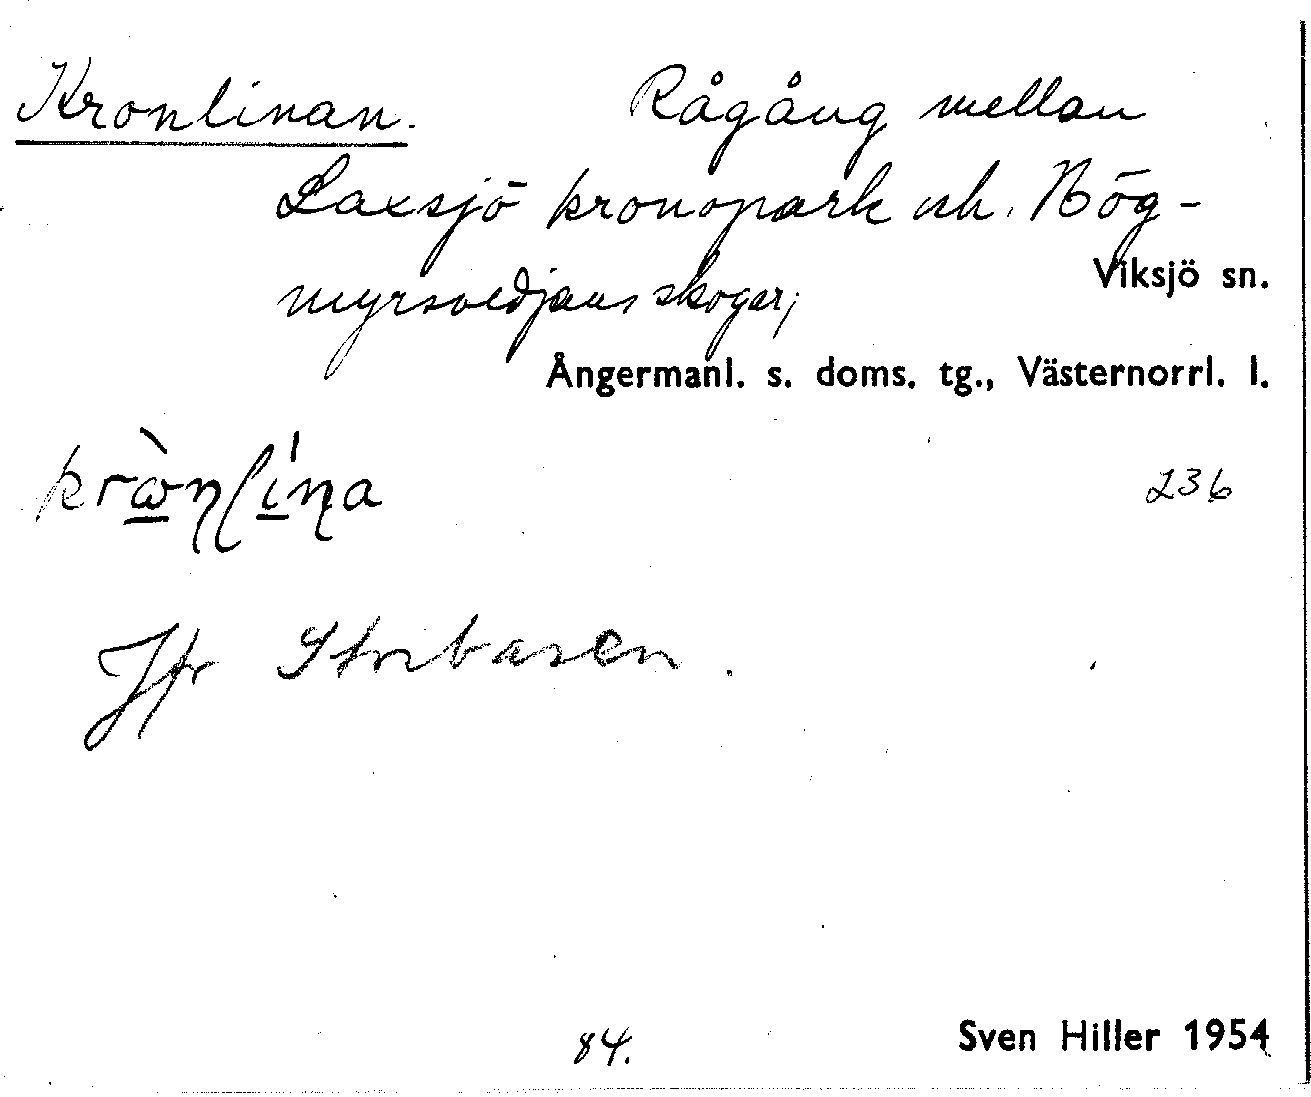 Kronlinan. Rågång mellan
Laxsjö kronopark och Hög-
Viksjö sn.
myrsvedjans skogar;
Ångermanl. s. doms. tg., Västernorrl. l.
236
Jfr Storbasen.
84.
Sven Hiller 1954